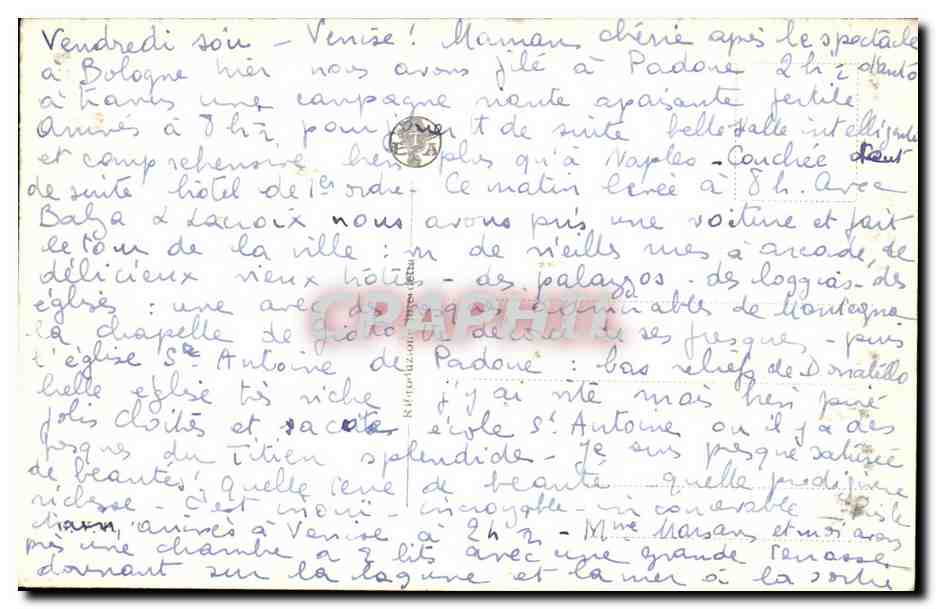 Vendredi soir – Venise! Maman chérie après le spectacle
à Bologne hier nous avons filé à Padoue 2h ½ d'auto
à travers une campagne riante apaisante fertile
arrivés à 8h ½ pour jouer t de suite belle salle intelligente
et compréhensive bien plus qu'à Naples – Couchée tout
de suite hôtel de 1er ordre – Ce matin levée à 8h. Avec
Balza & Lacroix nous avons pris une voiture et fait
le tour de la ville : de vieilles rues à arcades, de
délicieux vieux hôtels – des palazzos – des loggias – des
églises : une avec des fresques admirables de Mantegna
la chapelle de Giotto de ses fresques – puis
l'église St Antoine de Padoue : bas reliefs de Donatello
belle église très riche j'y ai vite mais bien prié
jolis cloîtres et école St Antoine où il y a des
fresques du Titien splendide – Je suis presque saturée
de beautés, quelle terre de beauté quelle prodigieuse
richesse – C'est inouï – incroyable – inconcevable
arrivés à Venise à 2h ½ – Mme Marsans et moi avons
pris une chambre à 2 lits avec une grande terrasse
donnant sur la lagune et la mer à la sortie
CPAPHIL